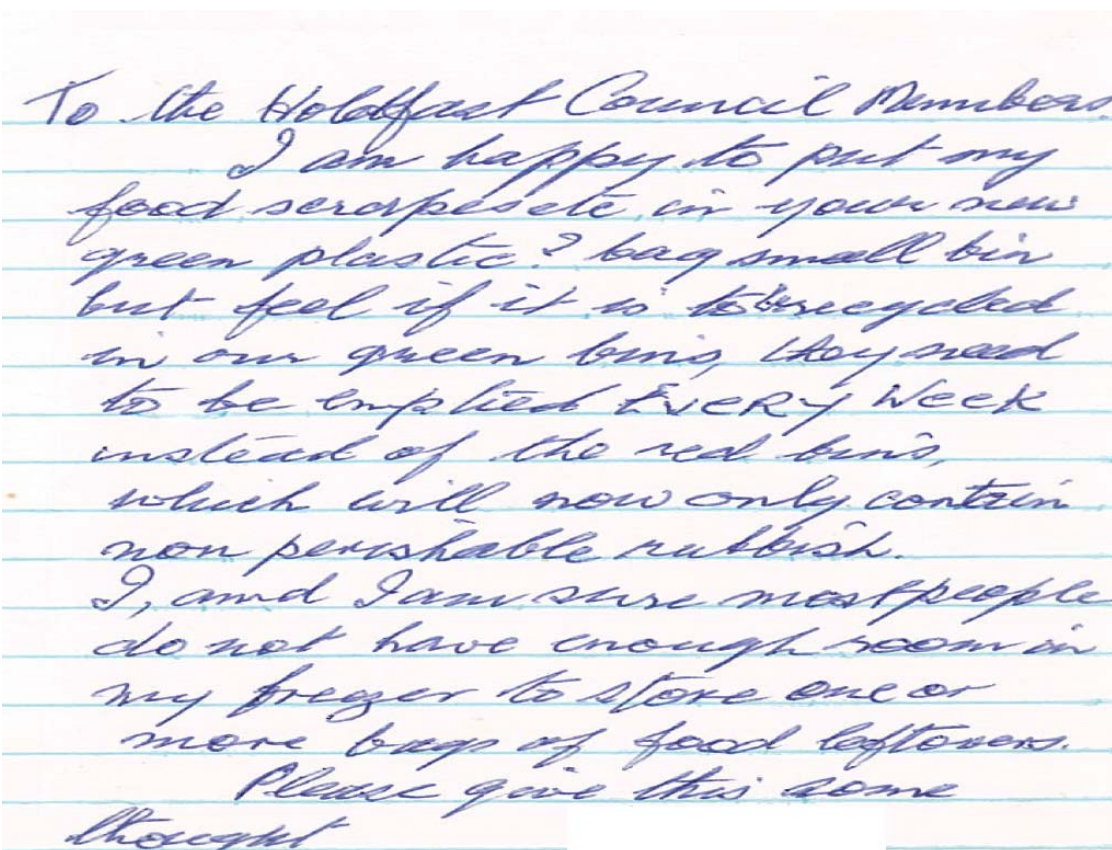 To the Holdfast Council Members
I am happy to put my
food scrapes etc, in your new
green plastic? bag small bin
but feel if it is to be recycled
in our green bins, they need
to be emptied EVERY WEEK
instead of the red bins,
which will now only contain
non perishable rubbish.
I, and I am sure most people
do not have enough room in
my freezer to store one or
more bags of food leftovers.
Please give this some
thought